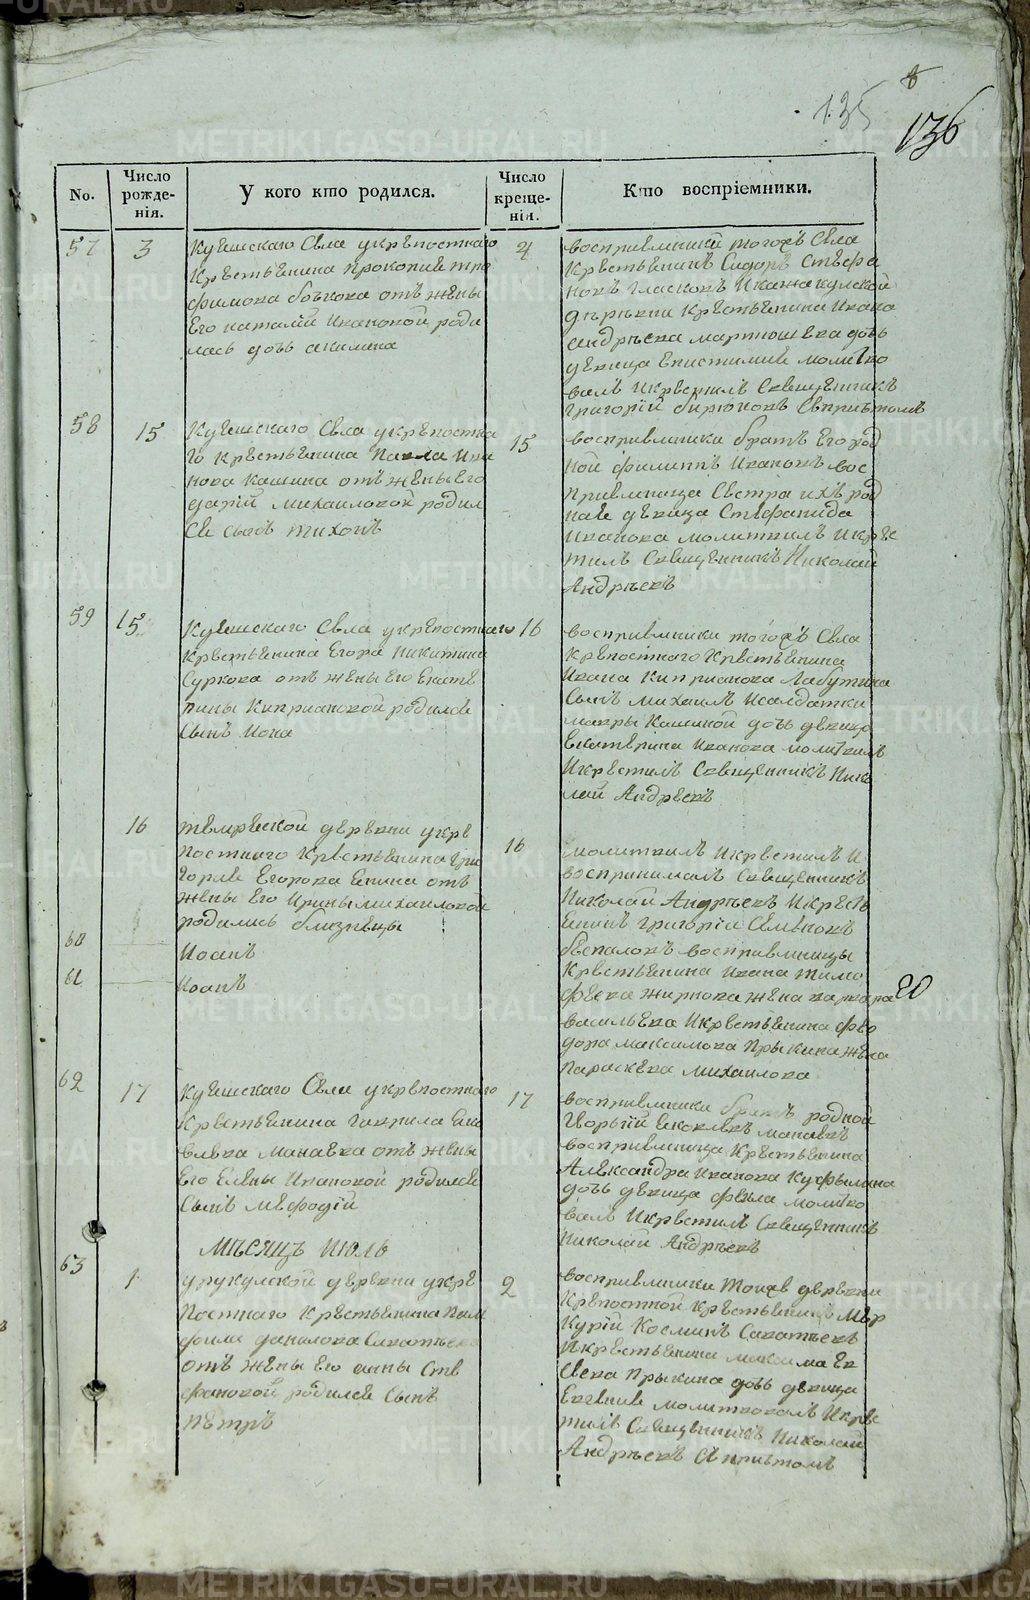 135
136
No.
Число рожде-нія.
У кого кто родился.
Число креще-нія.
Кто воспріемники.
57
3
Куяшскаго Села укрѣпостнаго
Крестьянина Прокопие тро
фимова бобкова отъ жены
Его наталіи Ивановой роди
лась дочь акилина
4
восприемники тогожъ Села
Крестьянинъ Сидоръ Стефа
новъ гласковъ
дѣрѣвни Крестьянина Ивана
андрѣева мартюшева дочь
девица Епистимия молитво
валъ Икрестилъ Священникъ
григорій бирюковъ Спричтомъ
58
15
Куяшскаго Села укрѣпостна
го крестьянина Павла Ива
нова Кашина отъ жены Его
дарій михаиловой родил
ся сынъ тихонъ
15
восприемники братъ Его род
ной филиппъ Ивановъ вос
приемница Сестра ихъ род
ная девица Стефанида
Иванова молитвилъ Икрес
тилъ Священникъ Николай
Андрѣевъ
59
15
Куяшскаго Села укрѣпостнаго
крестьянина Егора никитина
Суркова отъ жены Его Екате
рины Киприановой родился
Сынъ Иона
16
восприемники тогожъ Села
крѣпостного Крестьянина
Ивана Киприанова Лабутина
Сынъ михаилъ Исалдатки
мавры Кашиной дочь девица
Екатерина Иванова молитвилъ
Икрестилъ Священникъ Нико
лай Андрѣевъ
16
деревни укре
постнаго Крестьянина Гри
горие Егорова Енина отъ
жены Его Ирины михаиловой
родились близнецы
60
Иоанъ
61
Иоанъ
16
молитвилъ Икрестилъ И
воспринималъ Священникъ
Николай Андрѣевъ Икресть
енинъ григорій Семѣновъ
беспаловъ восприемницы
Крестьянина Ивана тимо
феева жирнова жена варвара
васильева Икрестьянина фео
дора максимова Прыкина жена
Параскева михаилова
20
62
17
Куяшскаго Села укрепостнаго
Крестьянина гаврила Яко
влева манаева отъ жены
Его Елены Ивановой родился
Сынъ мефодій
17
восприемники братъ родной
Георгій Яковлевъ манаевъ
восприемница Крестьянина
Александра Иванова Куфтина
дочь девица фекла молитво
валъ Икрестилъ Священникъ
Николай Андрѣевъ
Мѣсяцъ Июль
63
1
урукулской деревни укрѣ
постнаго Крестьянина Пам
фила данилова Саватѣева
отъ жены Его анны Сте
фановой родился Сынъ
Пѣтръ
2
восприемники Тоижъ деревни
Крѣпостной крестьянинъ Мер
курій Косминъ Саватѣевъ
Икрестьянина максима Ев
сѣева Прыкина дочь девица
Евгения молитвовалъ Икрес
тилъ Священникъ Николай
Андрѣевъ Спричтомъ
METRIKI.GASO-URAL.RU